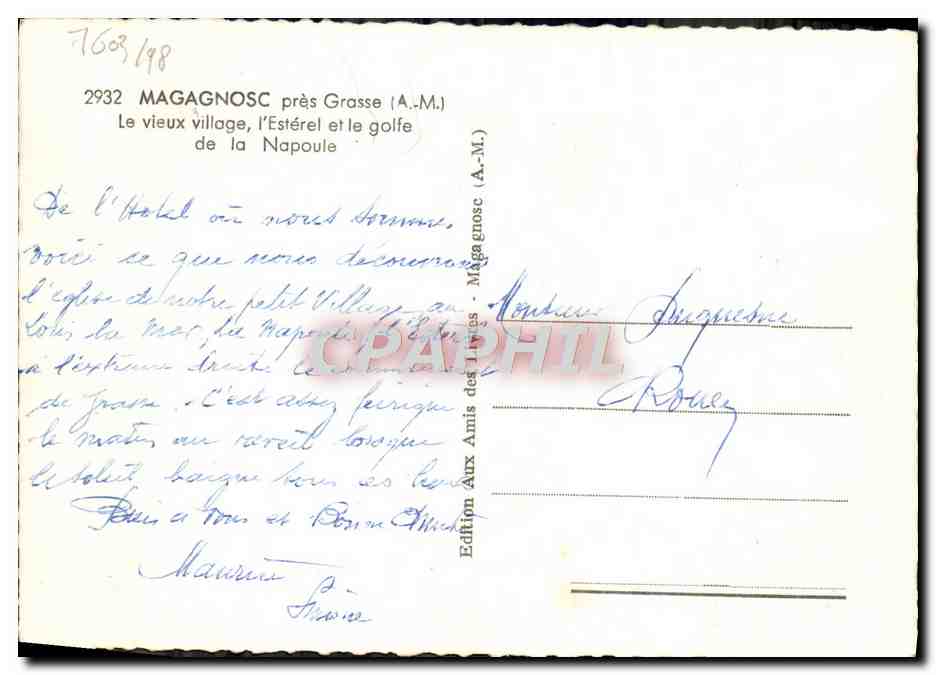 7603/98
2932 MAGAGNOSC près Grasse (A.-M.)
Le vieux village, l'Estérel et le golfe
de la Napoule
De l'Hotel où nous sommes
voici ce que nous découvrons
l'église de notre petit Village au
Loin la Mer, La Napoule, l'Esterel
à l'extreme droite le
de Grasse. C'est assez féerique
le matin au réveil lorsque
le soleil baigne tous ces
à Vous et Bonne
Maurice
Simone
Edition Aux Amis des Livres - Magagnosc (A.-M.)
Monsieur Duquesne
Rouen
CPAPHIL